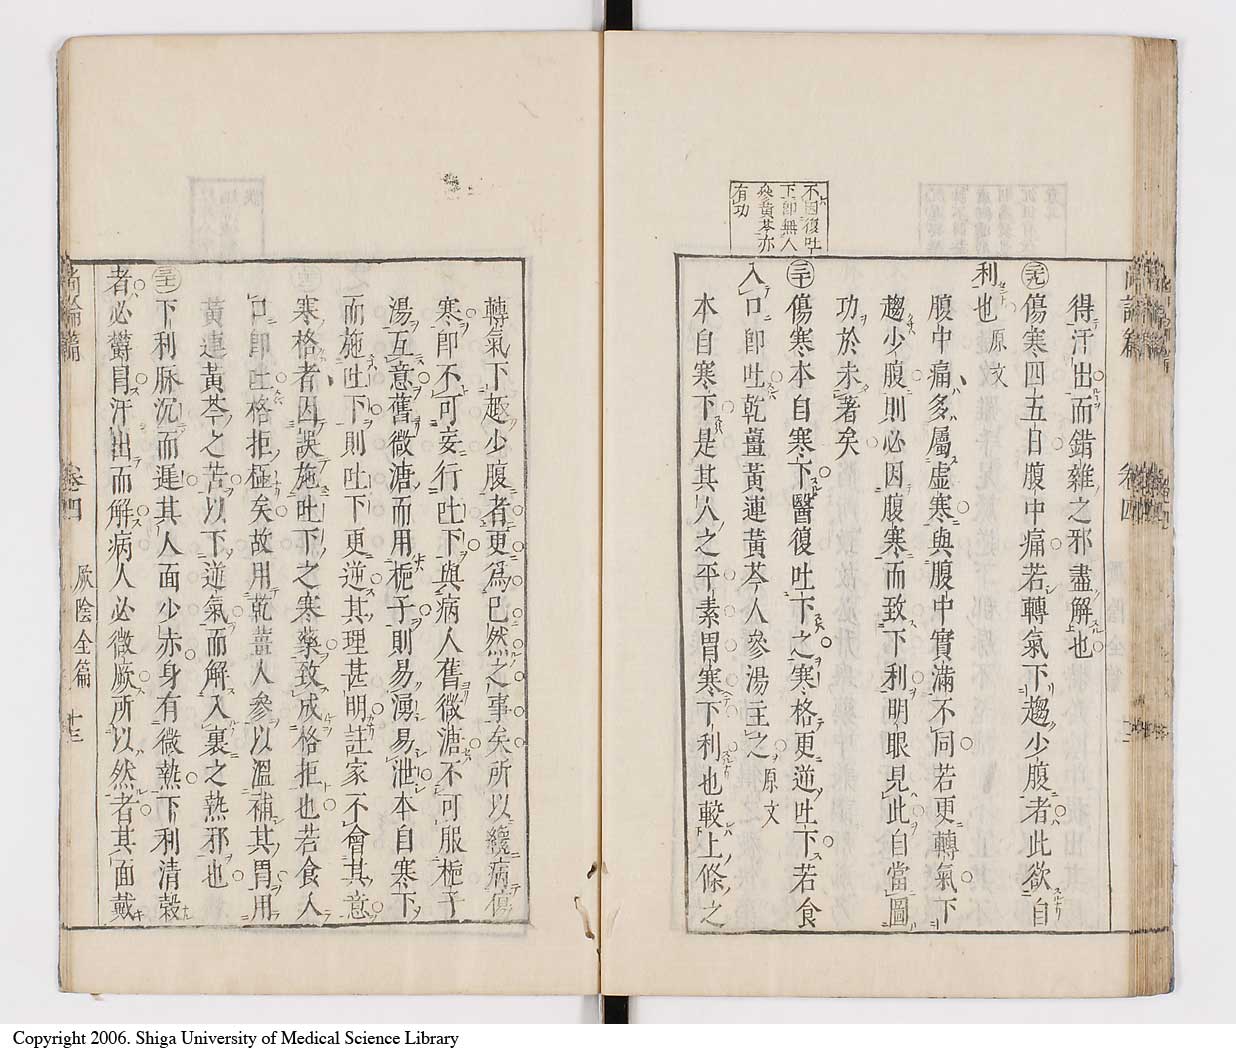 得汗出而錯雜之邪盡解也
㊀傷寒四五日腹中痛若轉氣下趨少腹者此欲自
利也 原文
腹中痛多屬虛寒與腹中實滿不同若更轉氣下
趨少腹則必因腹寒而致下利明眼見此自當圖
功於未著矣
三十傷寒本自寒下醫復吐下之寒格更逆吐下若食
入口即吐乾薑黃連黃芩人參湯主之 原文
本自寒下是其人之平素胃寒下利也較上條之
不因復吐
下即無人
參黃芩亦
有功
尚論篇 卷四
轉氣下趨少腹者更爲已然之事矣所以纔病傷
寒即不可妄行吐下與病人舊微溏不可服梔子
湯互意舊微溏而用梔子則易湧易泄本自寒下
而施吐下則吐下更逆其理甚明註家不會其意
寒格者因誤施吐下之寒藥致成格拒也若食入
口即吐格拒極矣故用乾薑人參以溫補其胃用
黃連黃芩之苦以下逆氣而解入裏之熱邪也
三一下利脉沉而遲其人面少赤身有微熱下利清穀
者必鬱冐汗出而解病人必微厥所以然者其面戴
尚論篇 卷四 厥陰全篇 十三
Copyright 2006. Shiga University of Medical Science Library